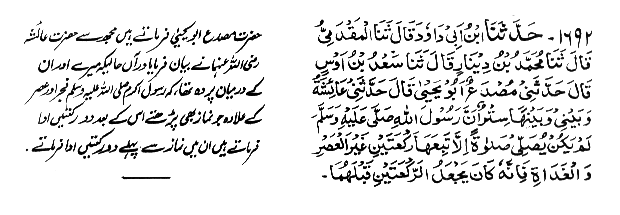 ١٦٩٢ - حَدَّثَنَا ابْنُ اَبِى دَاوٗدَ قَالَ ثَنَا الْمُقَدَّمِىُّ
قَالَ ثَنَا مُحَمَّدُ بْنُ دِيْنَارٍ قَالَ ثَنَا سَعْدُ بْنُ اَوْسٍ
قَالَ حَدَّثَنِىْ مِصْدَعٌ اَبُوْ يَحْيٰى قَالَ حَدَّثَتْنِىْ عَائِشَةُ
وَبَيْنِىْ وَبَيْنَهَا سِتْرٌ اَنَّ رَسُوْلَ اللّٰهِ صَلَّى عَلَيْهِ وَسَلَّمَ
لَمْ يَكُنْ يُصَلِّىْ صَلٰوةً اِلَّا تَبِعَهَا رَكْعَتَيْنِ غَيْرَ الْعَصْرِ
وَالْغَدَاةِ فَاِنَّهٗ كَانَ يَجْعَلُ الرَّكْعَتَيْنِ قَبْلَهُمَا۔
حضرت مصدع ابو یحییٰ فرماتے ہیں مجھ سے حضرت عائشہ
رضی اللہ عنہا نے بیان فرمایا درآں حالیکہ میرے اور ان
کے درمیان پردہ تھا، کہ رسول اکرم صلی اللہ علیہ وسلم فجر اور عصر
کے علاوہ جو نماز بھی پڑھتے اس کے بعد دو رکعتیں ادا
فرماتے ہیں ان میں نماز سے پہلے دو رکعتیں ادا فرماتے.